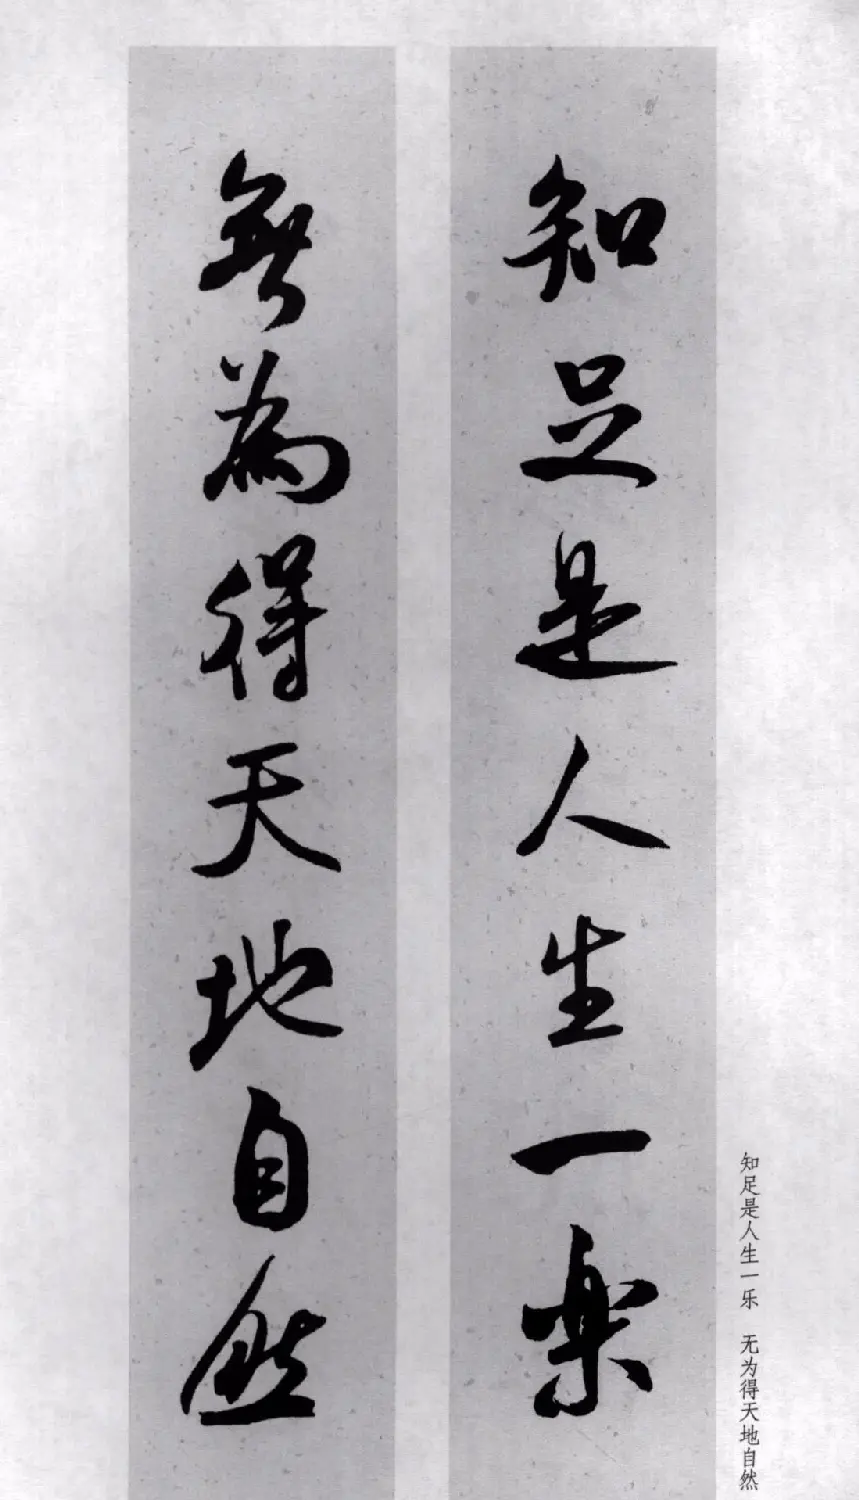 知足是人生一楽
無為得天地自然
知足是人生一乐 无为得天地自然